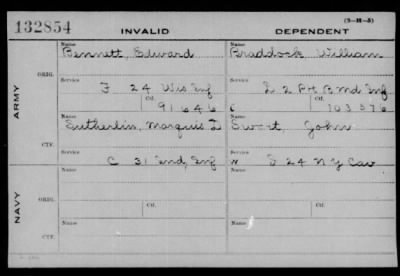 (3-H-5)
132854 INVALID DEPENDENT
Name Name
Bennett, Edward Braddock William
ORIG. Service Service
F 24 Wis Inf L 2 P B Md Inf
Ctf. Ctf.
91646 C 103576
ARMY
Name Name
Sutherlin, Marquis D Swart, John
CTF. Service Service
C 31 Ind, Inf N S 24 N Y Cav
Name Ctf. Name Ctf.
ORIG.
NAVY
Name Name
CTF.